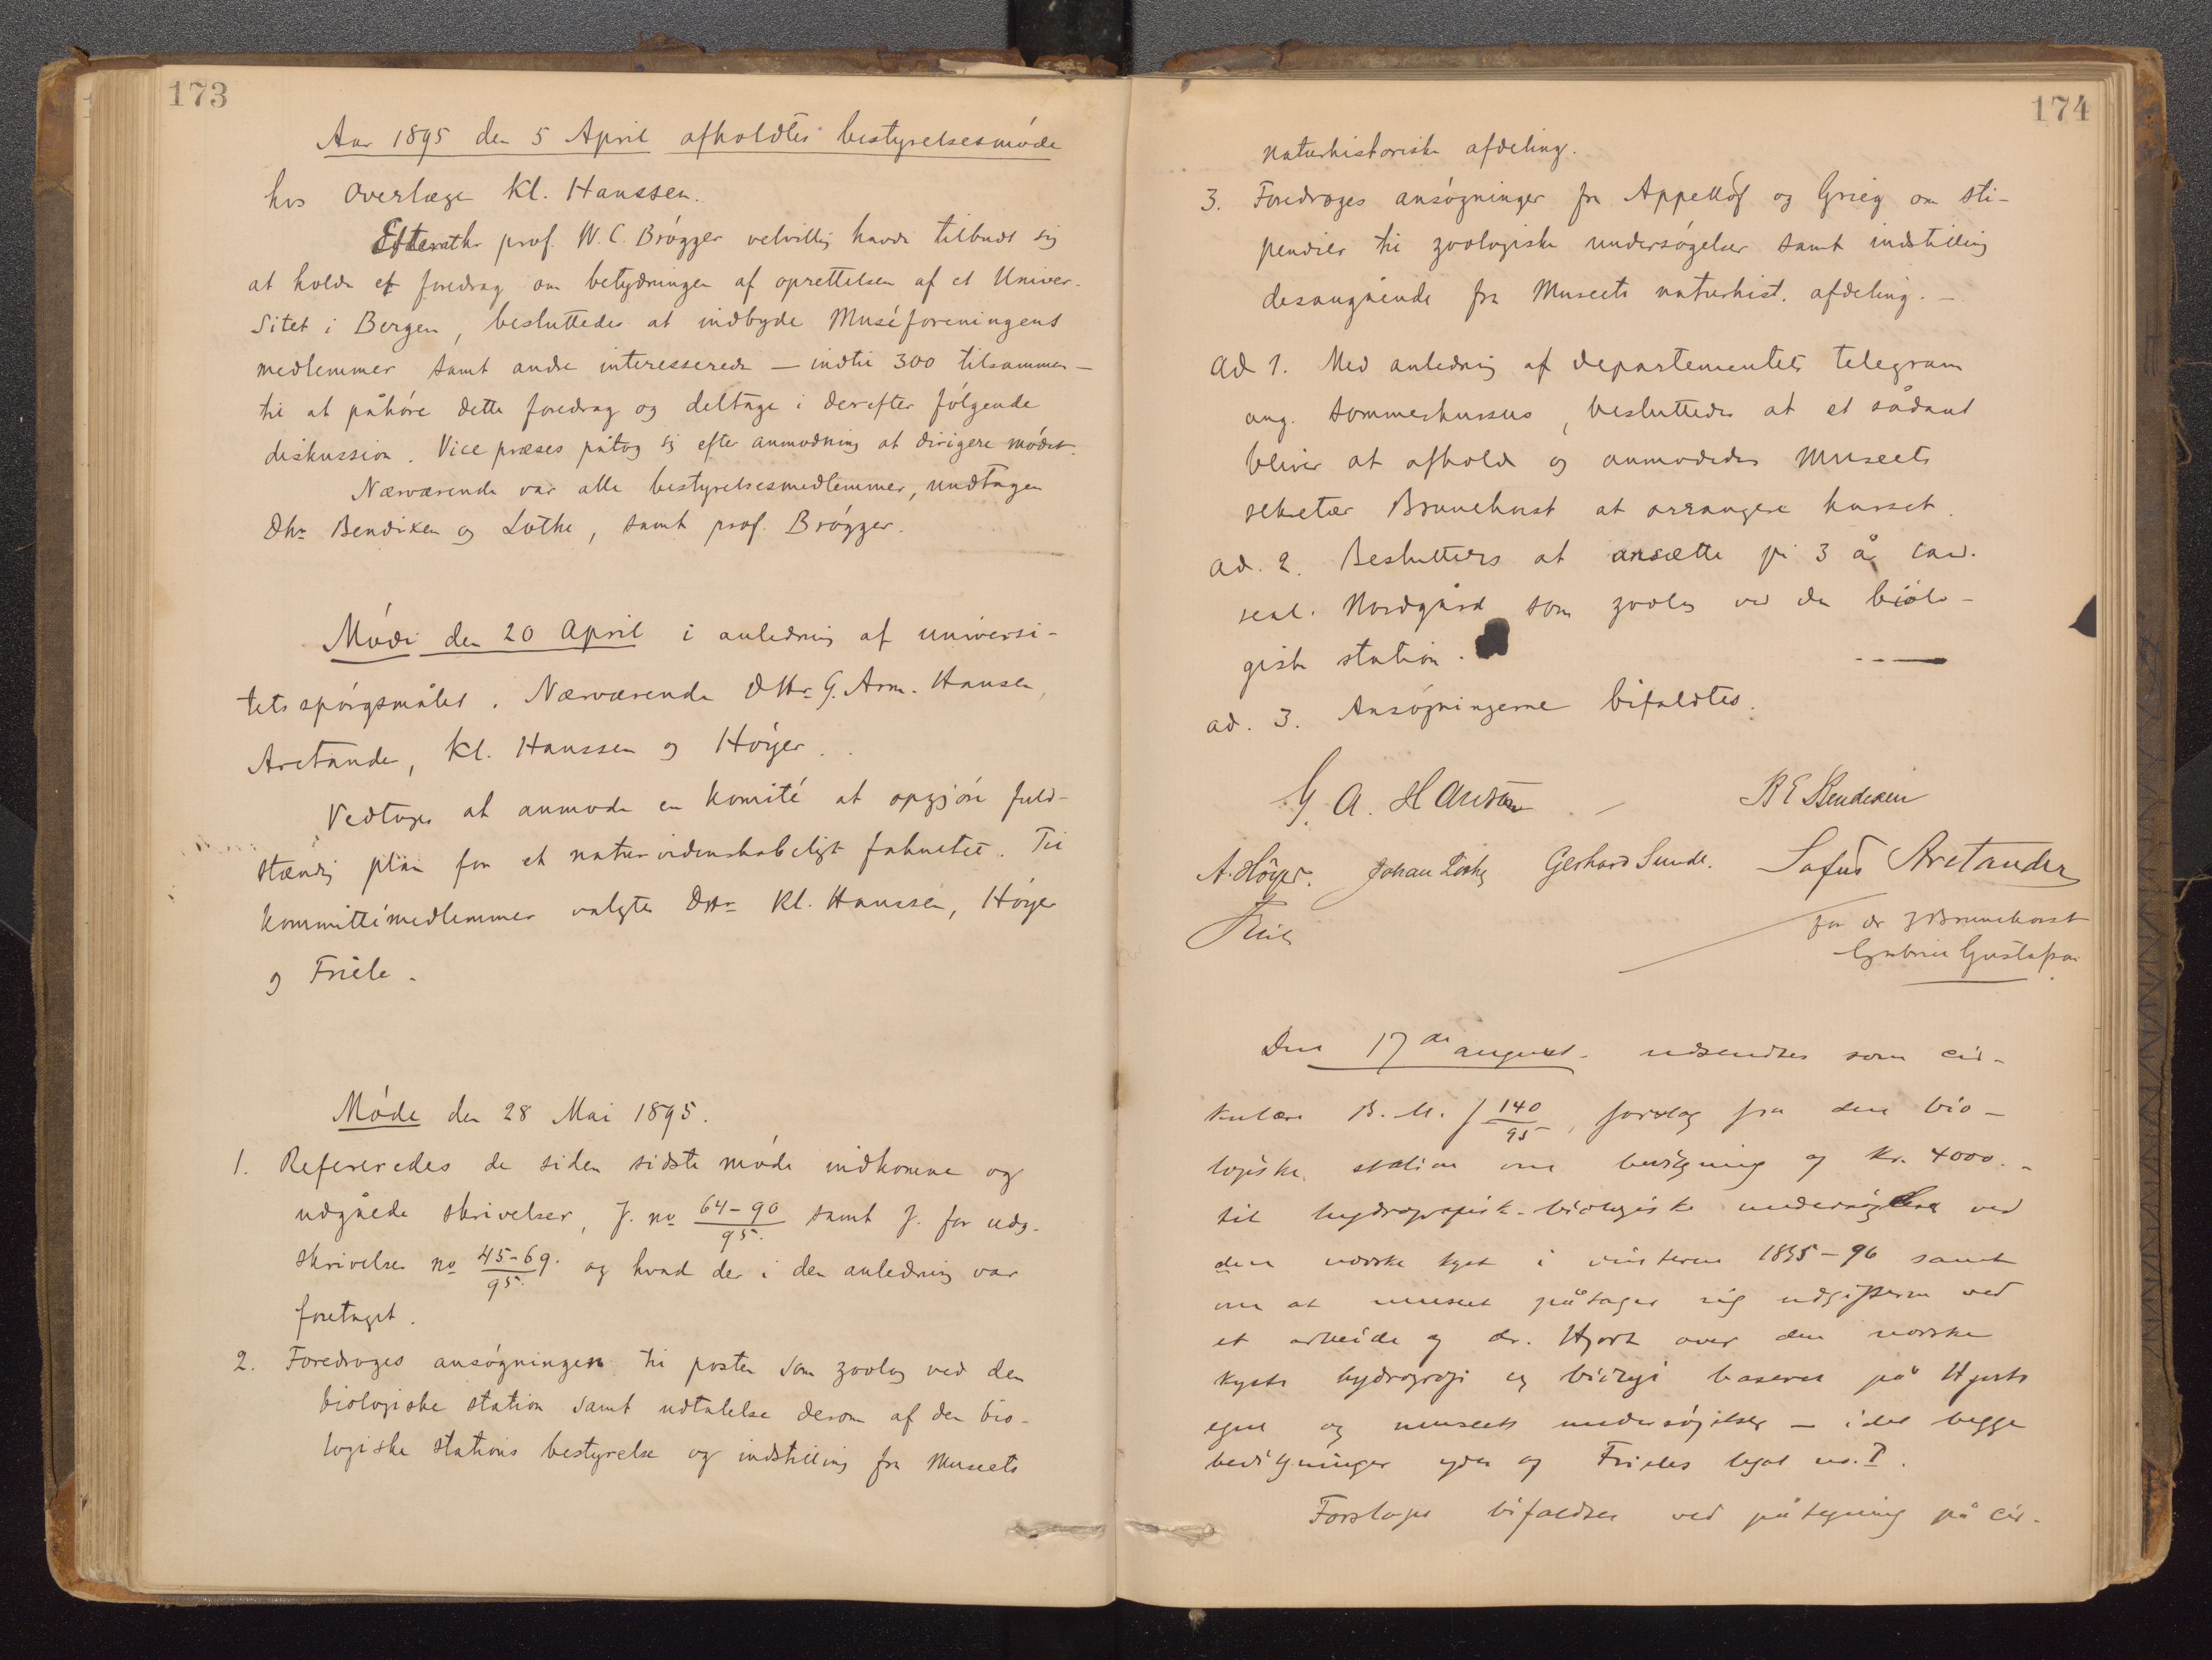 173
Aar 1895 den 5 April afholdtes bestyrelsesmöde
hos Overlæge Kl. Hanssen.
Efterat hr prof. W. C. Brögger velvillig havde tilbudt sig
at holde et foredrag om betydningen af oprettelsen af et Univer-
sitet i Bergen, besluttedes at indbyde Muséforeningens
medlemmer samt andre interesserede — indtil 300 tilsammen —
til at påhöre dette foredrag og deltage i derefter fölgende
diskussion. Vice præses påtog sig efter anmodning at dirigere mödet.
Nærværende var alle bestyrelsesmedlemmer, undtagen
Dhr. Bendixen og Lothe, samt prof. Brögger.
Möde den 20 April i anledning af universi-
tetsspörgsmålet. Nærværende DHr. G. Arm. Hansen,
Arctander, Kl. Hanssen og Höyer.
Vedtoges at anmode en komité at opgjöre fuld-
stændig plan for et naturvidenskabeligt fakultet. Til
kommittémedlemmer valgtes DHr. Kl. Hanssen, Höyer
og Friele.
Möde den 28 Mai 1895.
1. Refereredes de siden sidste möde indkomne og
udgåede skrivelser, J. no 64-90/95. samt J. for udg.
skrivelser no 45-69./95. og hvad der i den anledning var
foretaget.
2. Foredroges ansögningen til posten som zoolog ved den
biologiske station samt udtalelse derom af den bio-
logiske stations bestyrelse og indstilling fra Museets
174
naturhistoriske afdeling.
3. Foredroges ansögninger fra Appellöf og Grieg om sti-
pendier til zoologiske undersögelser samt indstilling
desangående fra Museets naturhist. afdeling. —
ad 1. Med anledning af departementets telegram
ang. sommerkursus, besluttedes at et sådant
bliver at afholde og anmodedes Museets
sekretær Brunchorst at arrangere kurset.
ad. 2. Besluttedes at ansætte på 3 år cand.
real. Nordgård som zoolog ved den biolo-
giske station.
ad. 3. Ansögningerne bifaldtes.
G. A. Hansen B E Bendixen
A. Höyer. Johan Lothe Gerhard Sunde. Sofus Arctander
Friele for dr J Brunchorst
Gabriel Gustafson
Den 17de august udsendtes som cir-
kulære B. M. J 140/95, forslag fra den bio-
logiske station om bevilgning af kr. 4000.-
til hydrografisk-biologiske undersögelser ved
den norske kyst i vinteren 1895-96 samt
om at museet påtager sig udgifterne ved
et arbeide af dr. Hjort over den norske
kysts hydrografi og biologi baseret på Hjorts
egne og museets undersögelser — idet begge
bevilgninger ydes af Frieles legat no. I.
Forslaget bifaldtes ved påtegning på cir-